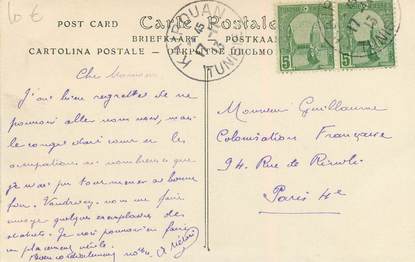 10 €
POST CARD
Carte Postale
BRIEFKAART
POSTKAART
CARTOLINA POSTALE
KAIROUAN
TUNISIE
5
5
Cher Monsieur
J'ai bien regretté de ne
pouvoir aller vous voir, mais
le congé était court et les
occupations si nombreuses que
je n'ai pu
fois. Voudriez-vous me faire
envoyer quelques exemplaires des
statuts. Je vais pouvoir en faire
un placement utile.
Bien cordialement
Monsieur Guillaume
Colonisation Française
94 Rue de Rivoli
Paris 4e